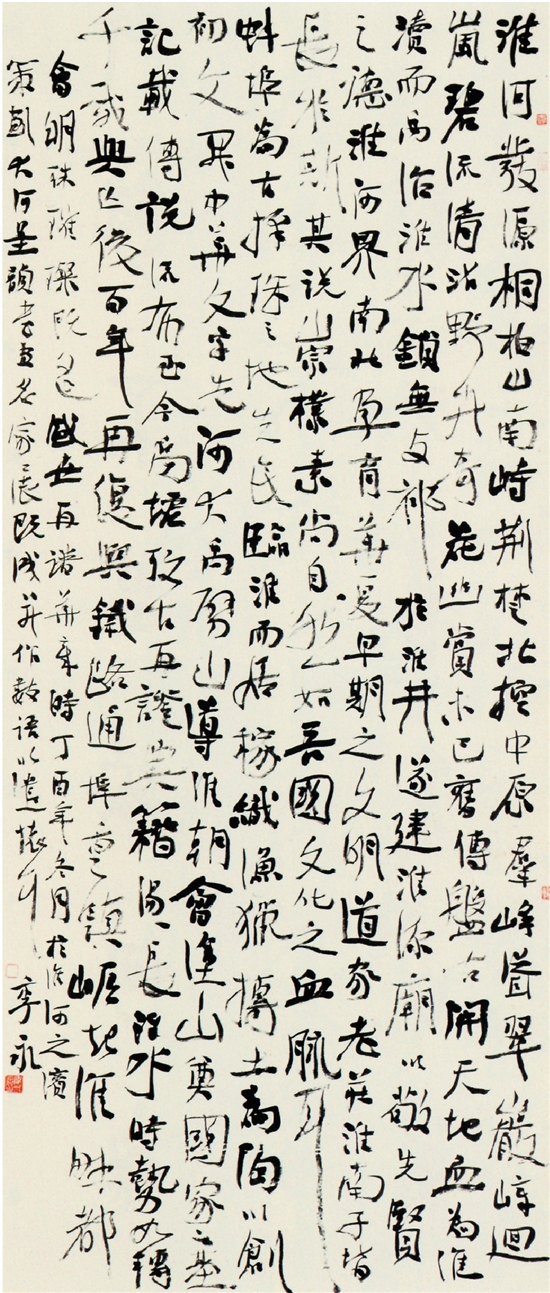 淮河發源桐柏山南峙荆楚北控中原羣峰聳翠巖嶂迴
嵐碧流清沿野卉奇花幽賞未已舊傳盤古開天地血為淮
瀆而禹治淮水鎖無支祁於淮井遂建淮瀆廟以敬先賢
之德淮河界南北孕育華夏早期之文明道家老莊淮南子皆
長於斯其說山宗樸素尚自然如吾國文化之血脈耳
蚌埠為古採珠之地先民臨淮而居稼織漁獵摶土為陶以創
初文畀中華文字先河大禹劈山導淮朝會塗山奠國家之基
記載傳說流布至今禹墟攷古再證典籍湯湯長淮水時勢如轉
千載興亡後百年再復興鐵路通埠重鎮崛起淮畔都
會明珠璀璨既逢盛世再譜華章時丁酉年冬月於淮河之濱
策劃大河星韻書畫名家展既成并作數語以遣懷耳 李永